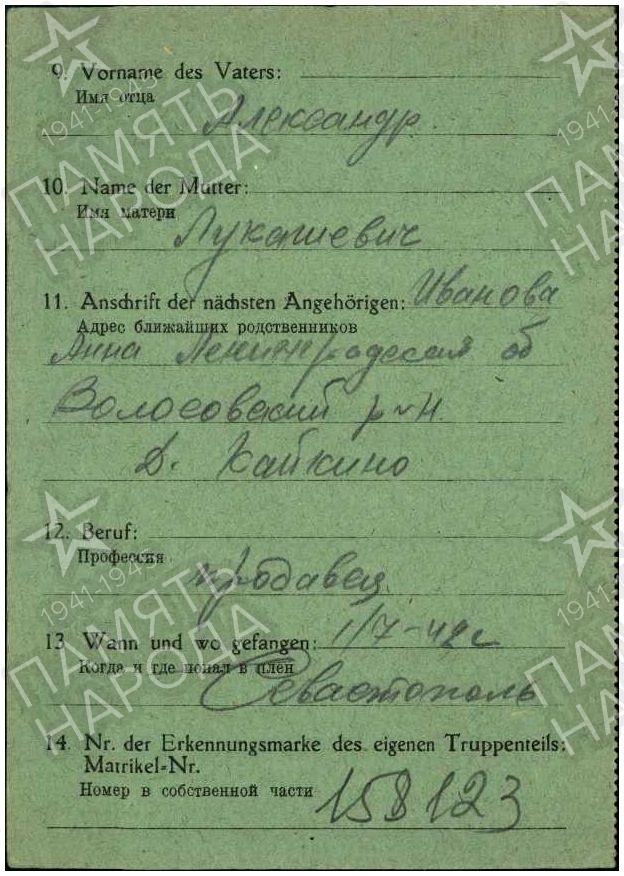 9. Vorname des Vaters:
Имя отца
Александр
10. Name der Mutter:
Имя матери
Лукашевич
11. Anschrift der nächsten Angehörigen: Иванова
Адрес ближайших родственников
Анна Ленинградская об
Волосовский р-н.
д. Кайкино
12. Beruf:
Профессия
продавец
13. Wann und wo gefangen: 1/7-42г
Когда и где попал в плен
Севастополь
14. Nr. der Erkennungsmarke des eigenen Truppenteils:
Matrikel-Nr.
Номер в собственной части
158123
1941-1945
ПАМЯТЬ
НАРОДА
1941-1945
ПАМЯТЬ
НАРОДА